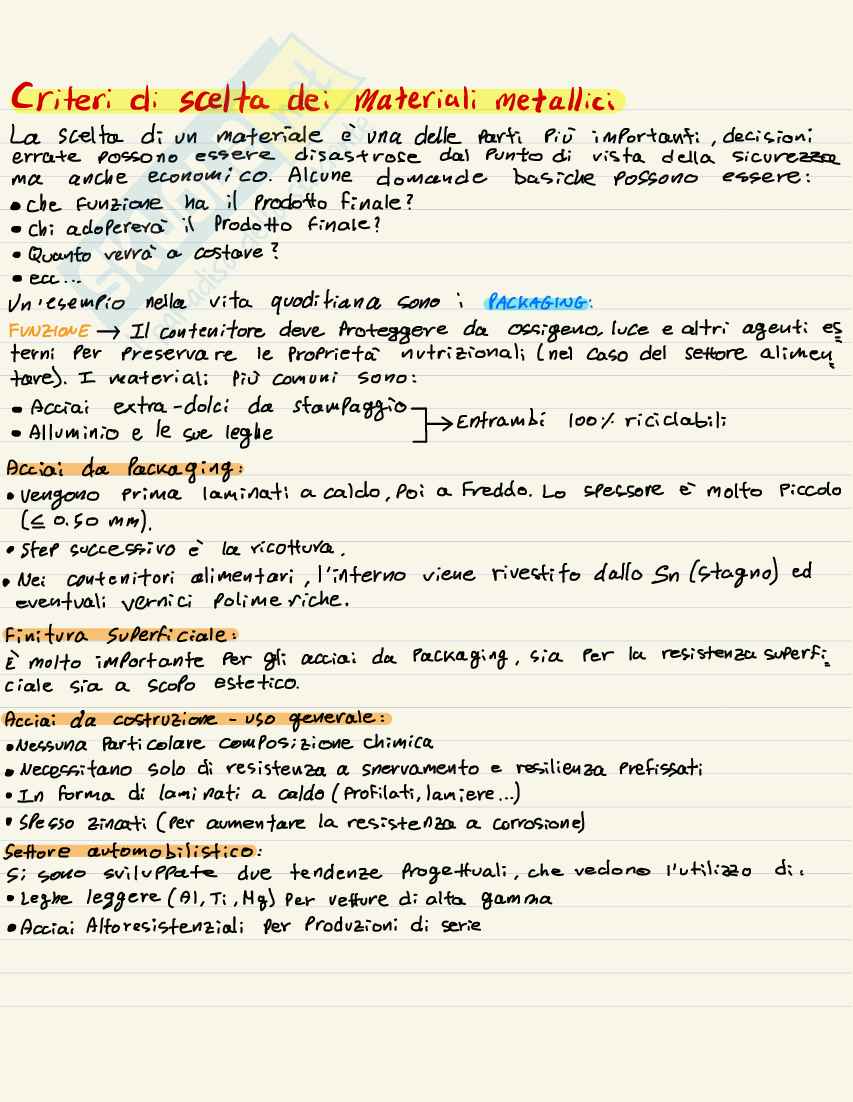 Criteri di scelta dei materiali metallici
La scelta di un materiale è una delle parti più importanti, decisioni
errate possono essere disastrose dal punto di vista della sicurezza
ma anche economico. Alcune domande basiche possono essere:
• Che funzione ha il prodotto finale?
• Chi adopererà il prodotto finale?
• Quanto verrà a costare?
• ecc...
Un'esempio nella vita quoditiana sono i PACKAGING:
FUNZIONE → Il contenitore deve proteggere da ossigeno, luce e altri agenti es
terni per preservare le proprietà nutrizionali (nel caso del settore alimen
tare). I materiali più comuni sono:
• Acciai extra-dolci da stampaggio
• Alluminio e le sue leghe
→ Entrambi 100% riciclabili
Acciai da Packaging:
• Vengono prima laminati a caldo, poi a freddo. Lo spessore è molto piccolo
(≤ 0.50 mm).
• Step successivo è la ricottura.
• Nei contenitori alimentari, l'interno viene rivestito dallo Sn (stagno) ed
eventuali vernici polimeriche.
Finitura superficiale:
È molto importante per gli acciai da packaging, sia per la resistenza superfi
ciale sia a scopo estetico.
Acciai da costruzione - uso generale:
• Nessuna particolare composizione chimica
• Necessitano solo di resistenza a snervamento e resilienza prefissati
• In forma di laminati a caldo (profilati, lamiere...)
• Spesso zincati (per aumentare la resistenza a corrosione)
Settore automobilistico:
Si sono sviluppate due tendenze progettuali, che vedono l'utilizzo di:
• Leghe leggere (Al, Ti, Mg) per vetture di alta gamma
• Acciai Altoresistenziali per produzioni di serie